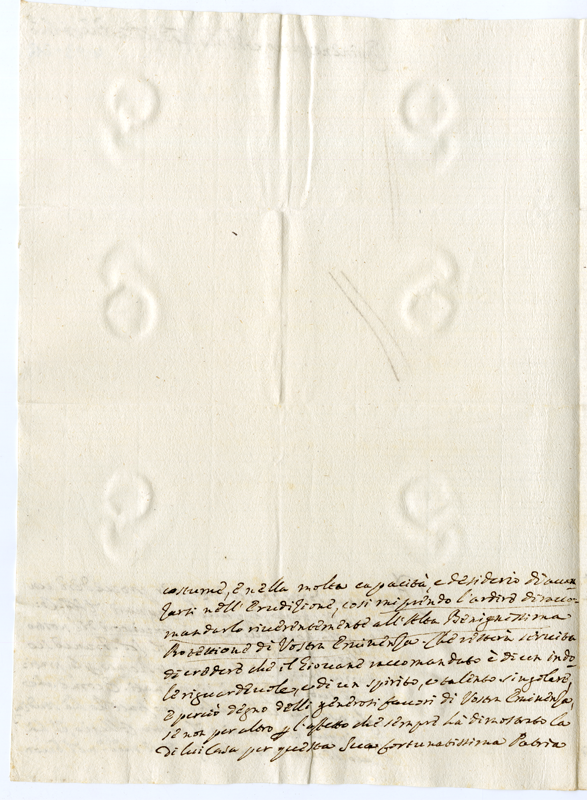 costumi, e nella molta capacità, e desiderio di avan
zarsi nell' Erudizione, così mi prendo l'ardire di racco
mandarlo riverentemente all' Alta Benignissima
Protettione di Vostra Eminenza che resterà servita
di credere che il Giovane raccomandato è di un indo
le riguardevole, e di un spirito, e talento singolare,
e perciò degno delli generosi favori di Vostra Eminenza,
se non per altro p l'affetto che sempre ha dimostrato la
di lui Casa per questa Sua fortunatissima Patria